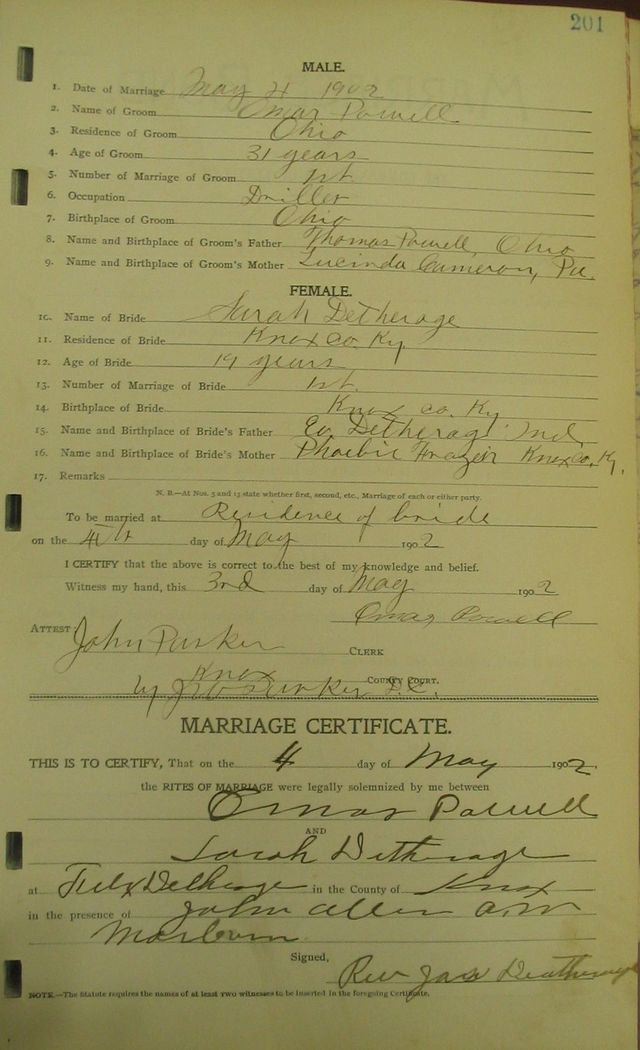 201
MALE.
1. Date of Marriage May 4 1902
2. Name of Groom Omar Powell
3. Residence of Groom Ohio
4. Age of Groom 31 years
5. Number of Marriage of Groom 1st
6. Occupation Driller
7. Birthplace of Groom Ohio
8. Name and Birthplace of Groom's Father Thomas Powell, Ohio
9. Name and Birthplace of Groom's Mother Lucinda Cameron, Pa.
FEMALE.
10. Name of Bride Sarah Detherage
11. Residence of Bride Knox Co. Ky.
12. Age of Bride 19 years
13. Number of Marriage of Bride 1st.
14. Birthplace of Bride Knox Co. Ky
15. Name and Birthplace of Bride's Father Detherage Ind.
16. Name and Birthplace of Bride's Mother Phoebie Frazeir Knox Co. Ky.
17. Remarks
N. B.—At Nos. 5 and 13 state whether first, second, etc., Marriage of each or either party.
To be married at Residence of bride
on the 4th day of May 1902
I CERTIFY that the above is correct to the best of my knowledge and belief.
Witness my hand, this 3rd day of May 1902
Omar Powell
ATTEST: John Parker CLERK
Knox COUNTY COURT.
by D.C.
MARRIAGE CERTIFICATE.
THIS IS TO CERTIFY, That on the 4 day of May 1902.
the RITES OF MARRIAGE were legally solemnized by me between
Omar Powell
AND
Sarah Detherage
at Detherage in the County of Knox
in the presence of John Allen
Signed,
Rev Jas Deatherage
NOTE.—The Statute requires the names of at least two witnesses to be inserted in the foregoing Certificate.